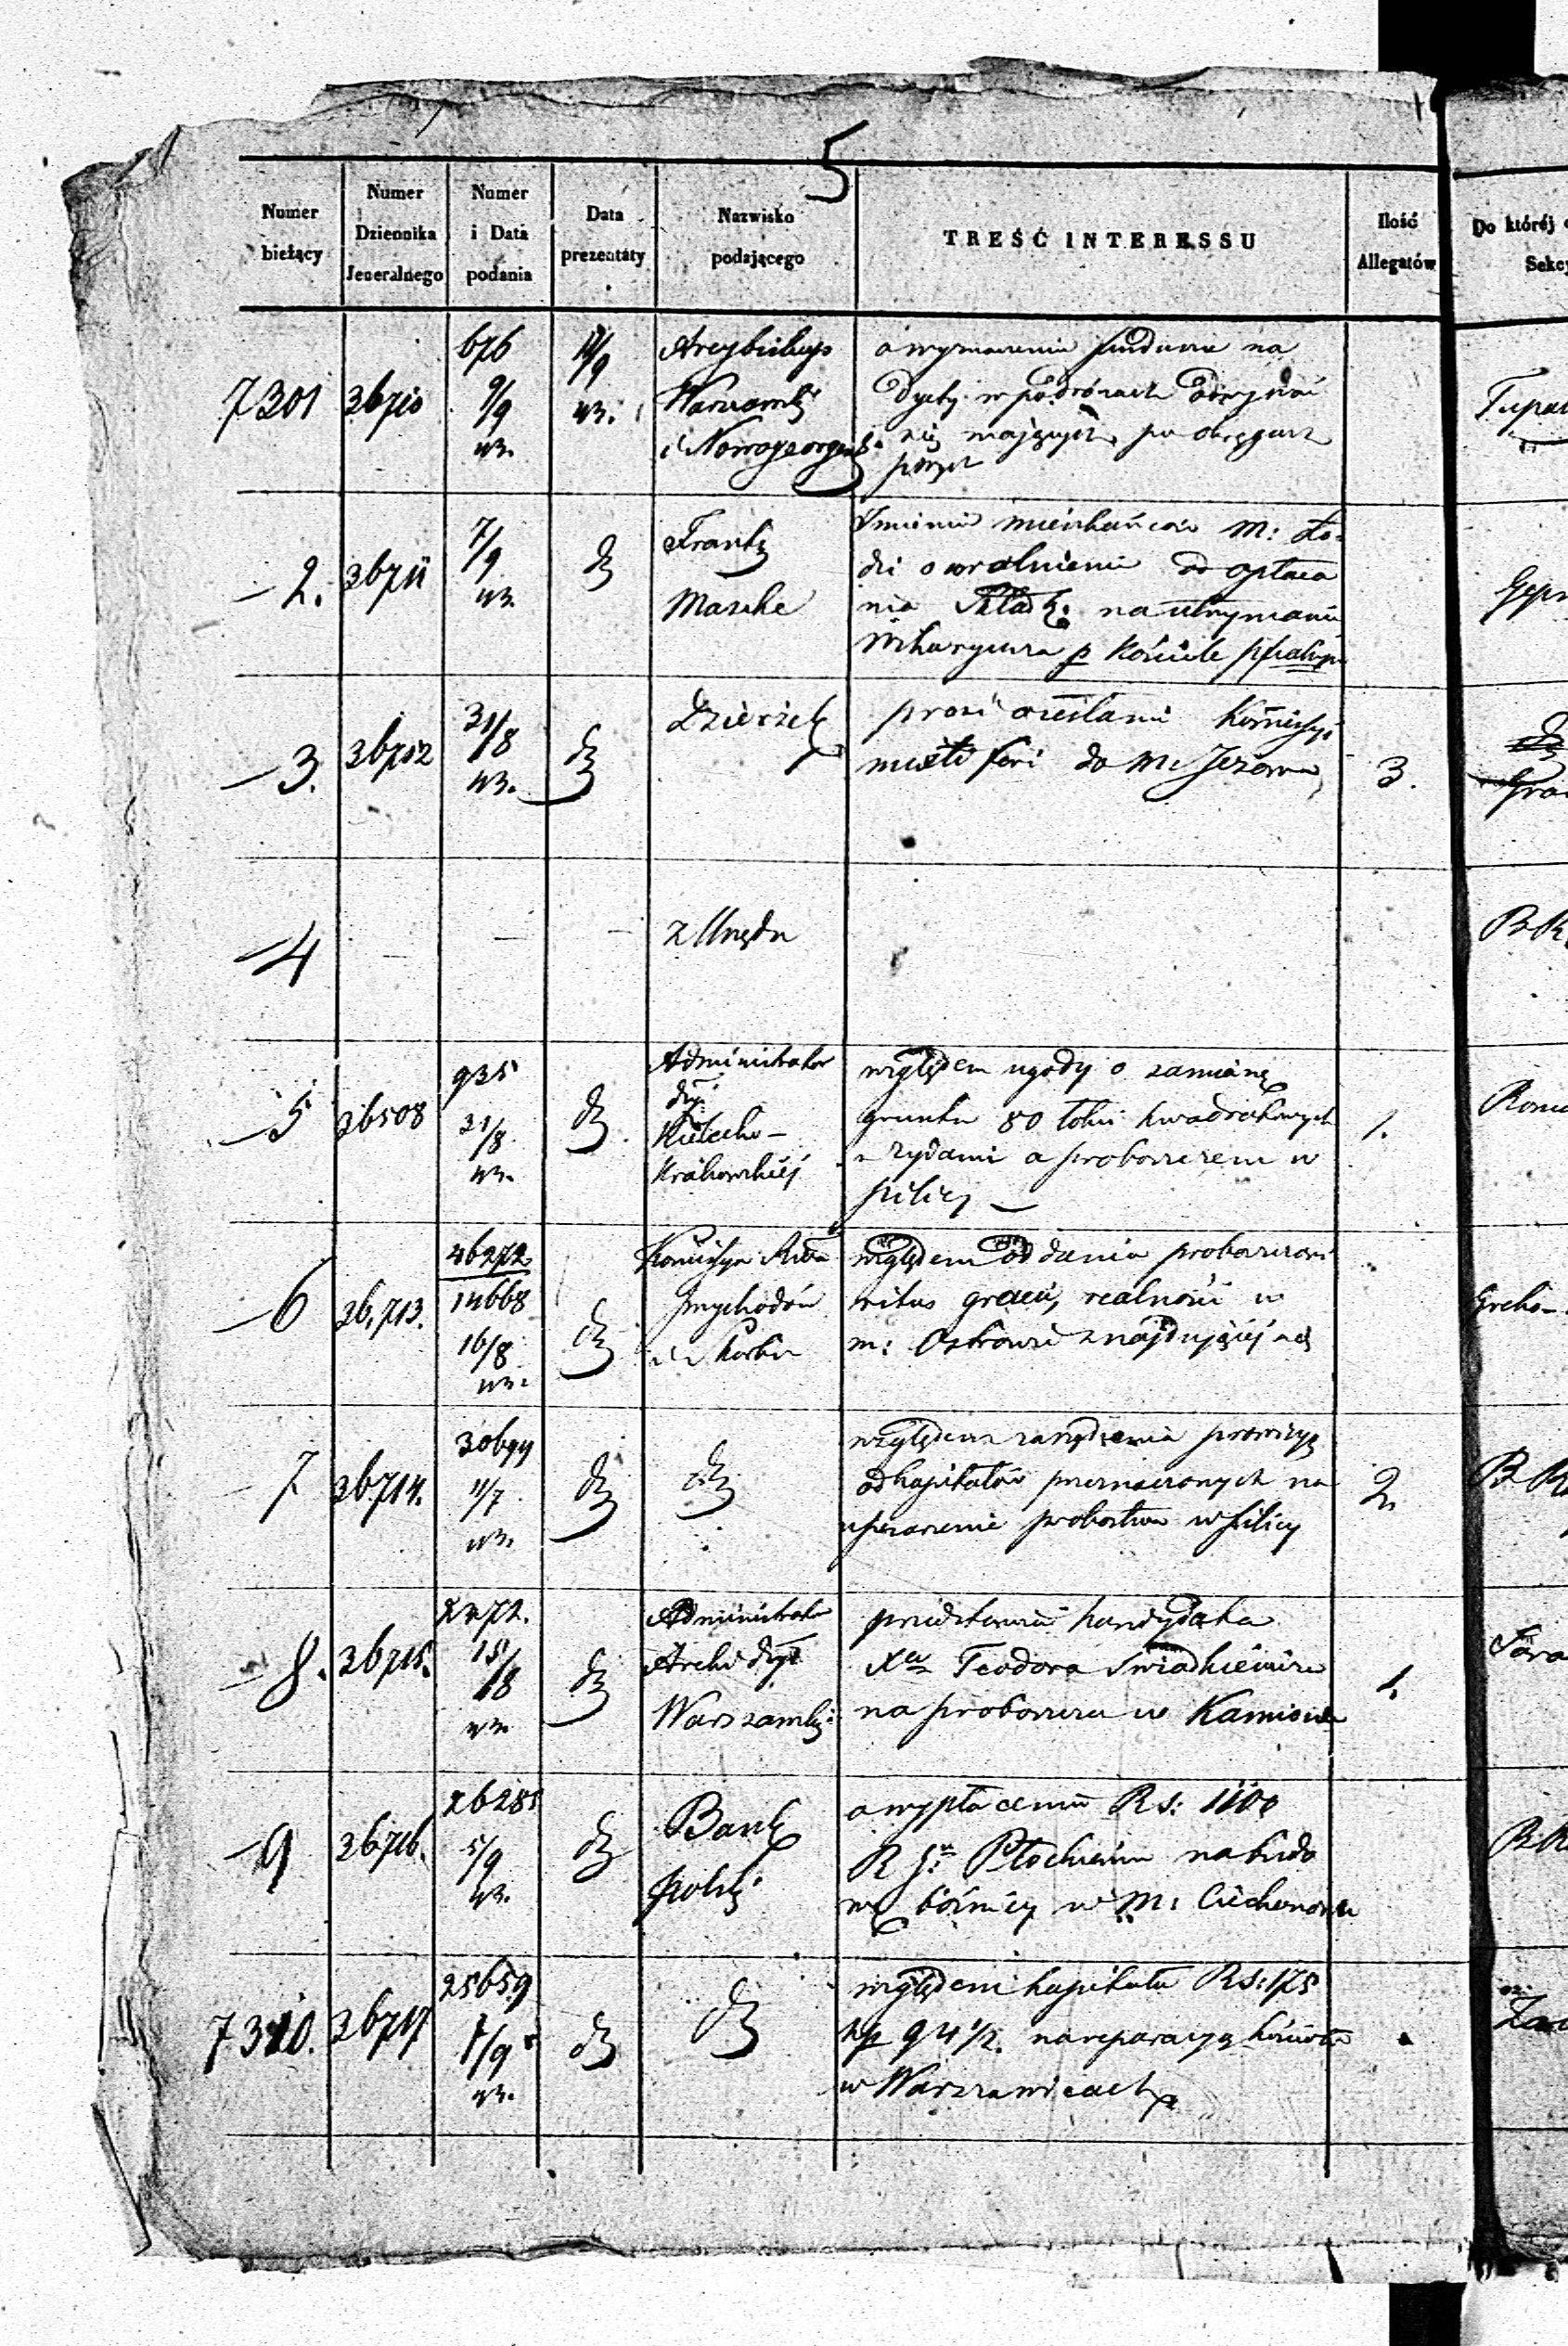 5
Numer bieżący
Numer Dziennika Jeneralnego
Numer i Data podania
Data prezentaty
Nazwisko podającego
TREŚĆ INTERESSU
Ilość Allegatów
Do któréj
7301 36710 676 9/9 43. 11/9 43. Arcybiskup
Warszawski
i Nowogeorg
o wyznaczenie funduszu na
dyety w podróżach odbywać
się mających po okręgach
2. 36711 7/9 43. d
Frank
Masche
Imieniem mieszkańców M: Ło-
dzi o uwolnienie od opłaca
nia Składk. na utrzymanie
Wikaryusza p Kościele
3. 36712 31/8 43. d
Dzierżek
prosi o zesłanie Kommissyi
mixti fori do M. Jeżowa
3.
4 — —
z Urzędu
5 36508 935 21/8 43. d
Administrator
Dyi
Kielecko-
Krakowskiéj
względem ugody o zamianę
gruntu 80 łokci kwadratowych
z Żydami a proboszczem w
Pilicy —
1.
6 36,713. 46272 14668 16/8 43. d
Komissya Rwa
Przychodów
i Skarbu
względem oddania proboszczowi
ritus graeci, realności w
m: Ostrowie znajdującéj się
Greko-
7 36714. 30699 11/7 43. d d
względem zarządzenia prowizyą
od kapitałów przeznaczonych na
uposażenie probostwa w Pilicy
2
8. 36715. 2472. 15/8 43. d
Administrator
Archi Dyi
Warszawski
przedstawia kandydata
Xa Teodora Świadkiewicza
na proboszcza w
1.
9 36716. 26285 5/9 43. d
Bank
Polski
o wypłaceniu Rs: 1100
R G: Płockiemu na budo
wę bóżnicy w M: Ciechanowie
7310. 36717 25659 1/9 43. d d
względem kapitału Rs: 175
kp 94 1/2. na reparacyą kościoła
w Warszawicach